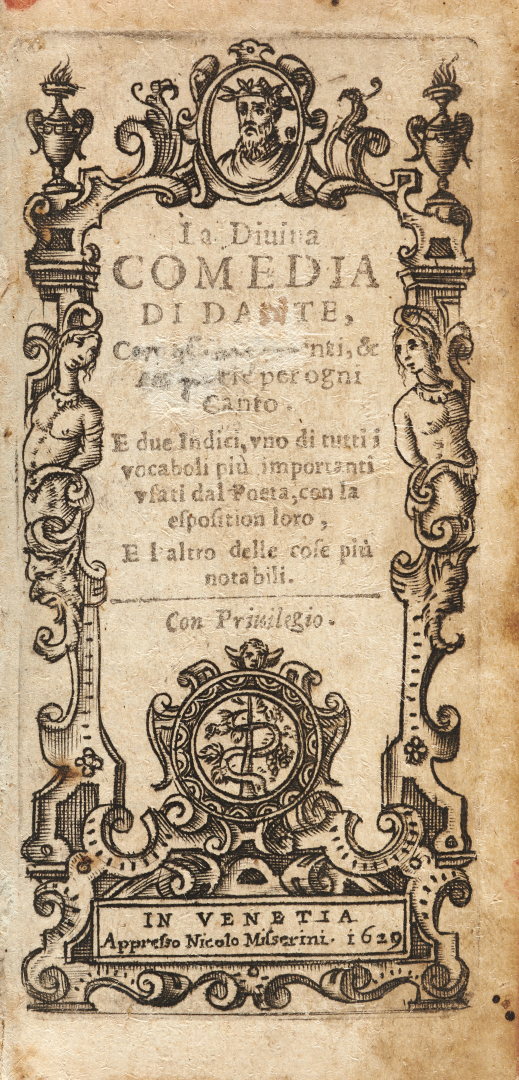 La Diuina
COMEDIA
DI DANTE,
Con gli &
per ogni
Canto.
E due Indici, vno di tutti i
vocaboli più importanti
vſati dal Poeta, con la
eſpoſition loro,
E l'altro delle coſe più
notabili.
Con Priuilegio.
IN VENETIA
Appreſſo Nicolo Miſſerini. 1629